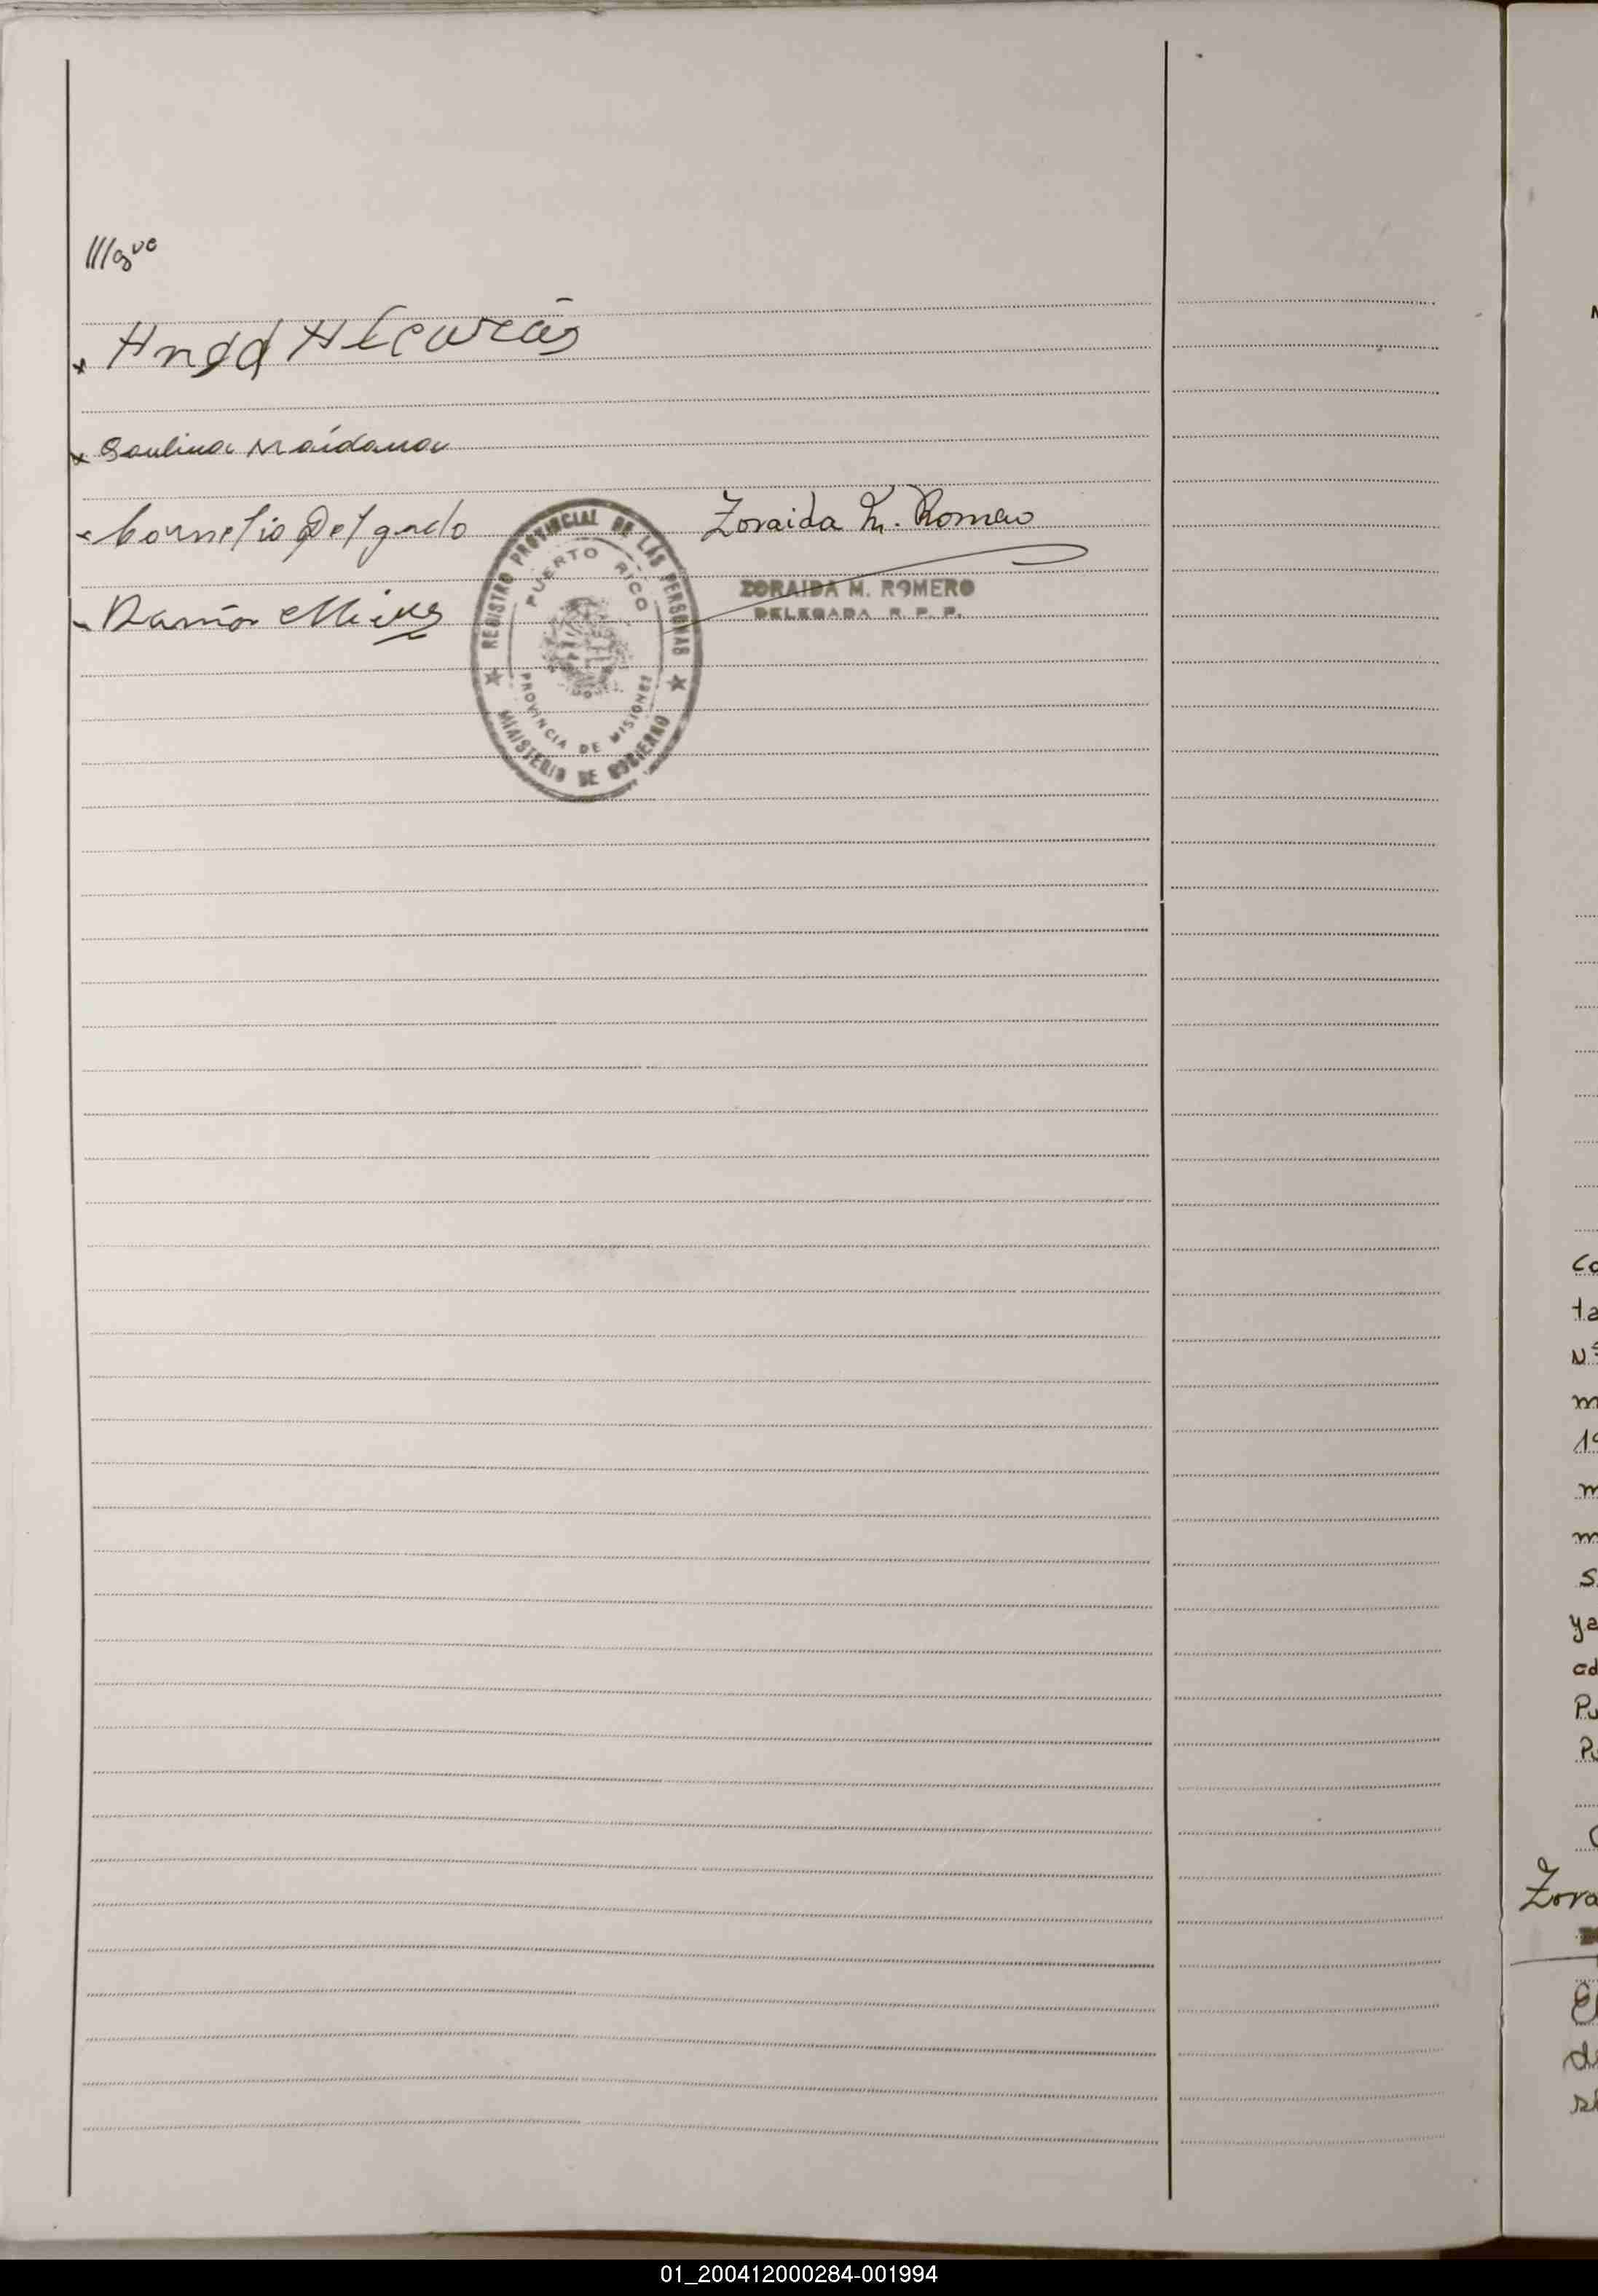 ///gue
x Angel
x Paulina Maidana
x Cornelio Delgado
Zoraida M. Romero
REGISTRO PROVINCIAL DE LAS PERSONAS
PUERTO RICO
PROVINCIA DE MISIONES
MINISTERIO DE GOBIERNO
ZORAIDA M. ROMERO
DELEGADA R. P. P.
Ramón
co
ta
Nº
m
19
m
m
S
ya
cd
Pu
Pu
Zora
de
01_200412000284-001994